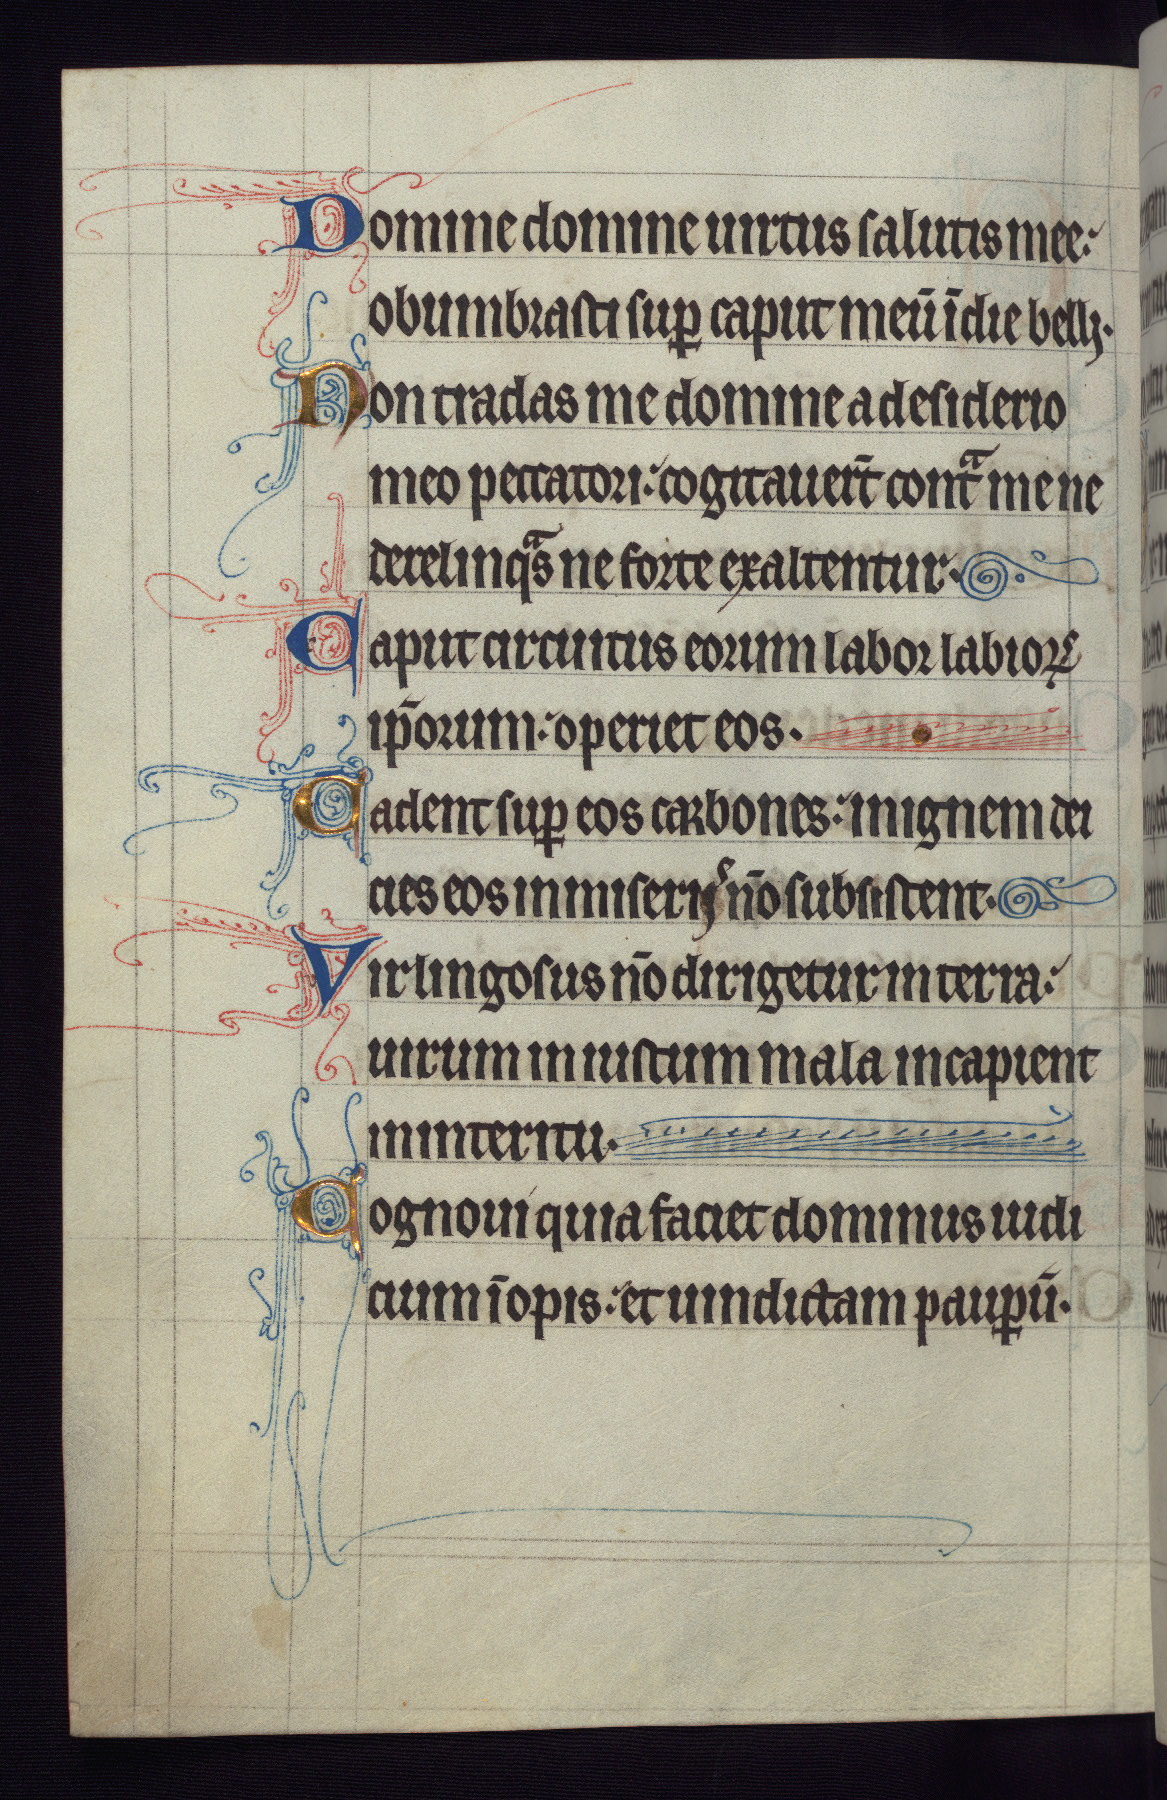 Domine domine uirtus salutis mee:
obumbrasti sup̱ caput meū īdie belli.
Non tradas me domine a desiderio
meo peccatori: cogitauer̄t contᵃ me ne
derelinqᵃs ne forte exaltentur.
Caput circuitus eorum labor labioꝝ
ip̄orum: operiet eos.
Cadent suꝑ eos carbones: in ignem dei
cies eos in miserijˢ nō subsistent.
Vir lingosus nō dirigetur in terra:
uirum in iustum mala incapient
in interitu.
Cognoui quia faciet dominus iudi
cium īopis: et uindictam pauꝑū.